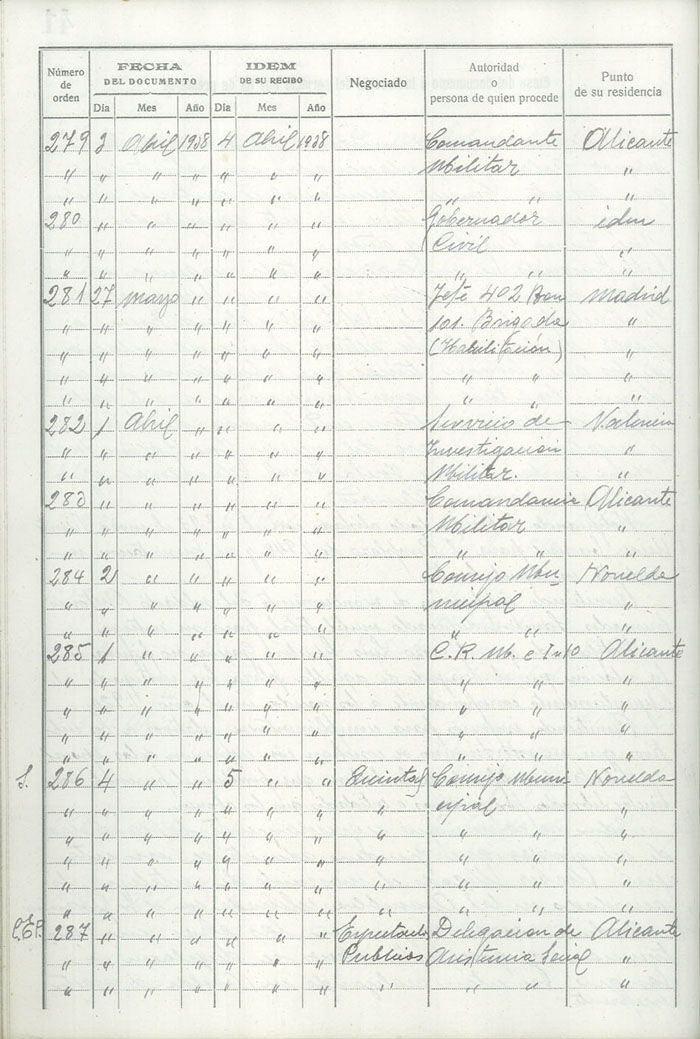 Número de orden FECHA DEL DOCUMENTO IDEM DE SU RECIBO Negociado Autoridad o persona de quien procede Punto de su residencia
Día Mes Año Día Mes Año
279 3 Abril 1938 4 Abril 1938 Comandante Alicante
" " " " " " Militar "
" " " " " " " " "
280 " " " " " " Gobernador idem
" " " " " " Civil "
" " " " " " " " "
281 27 marzo " " " " Jefe 402 Bon Madrid
" " " " " " 101. Brigada "
" " " " " " (Habilitación) "
" " " " " " " " "
" " " " " " " " "
282 1 Abril " " " " Servicio de Valencia
" " " " " " Investigacion "
" " " " " " Militar. "
283 " " " " " " Comandancia Alicante
" " " " " " Militar "
" " " " " " " " "
284 2 " " " " " Consejo Mu- Novelda
" " " " " " nicipal "
" " " " " " " " "
285 1 " " " " " C. R. M. e I nº 10 Alicante
" " " " " " " " "
" " " " " " " " "
" " " " " " " " "
" " " " " " " " "
S. 286 4 " " 5 " " Quintas Consejo Muni Novelda
" " " " " " " cipal "
" " " " " " " " " "
" " " " " " " " " "
" " " " " " " " " "
" " " " " " " " " "
287 " " " " " " Espectaculos Delegacion de Alicante
" " " " " " Publicos Asistencia Social "
" " " " " " " " " "